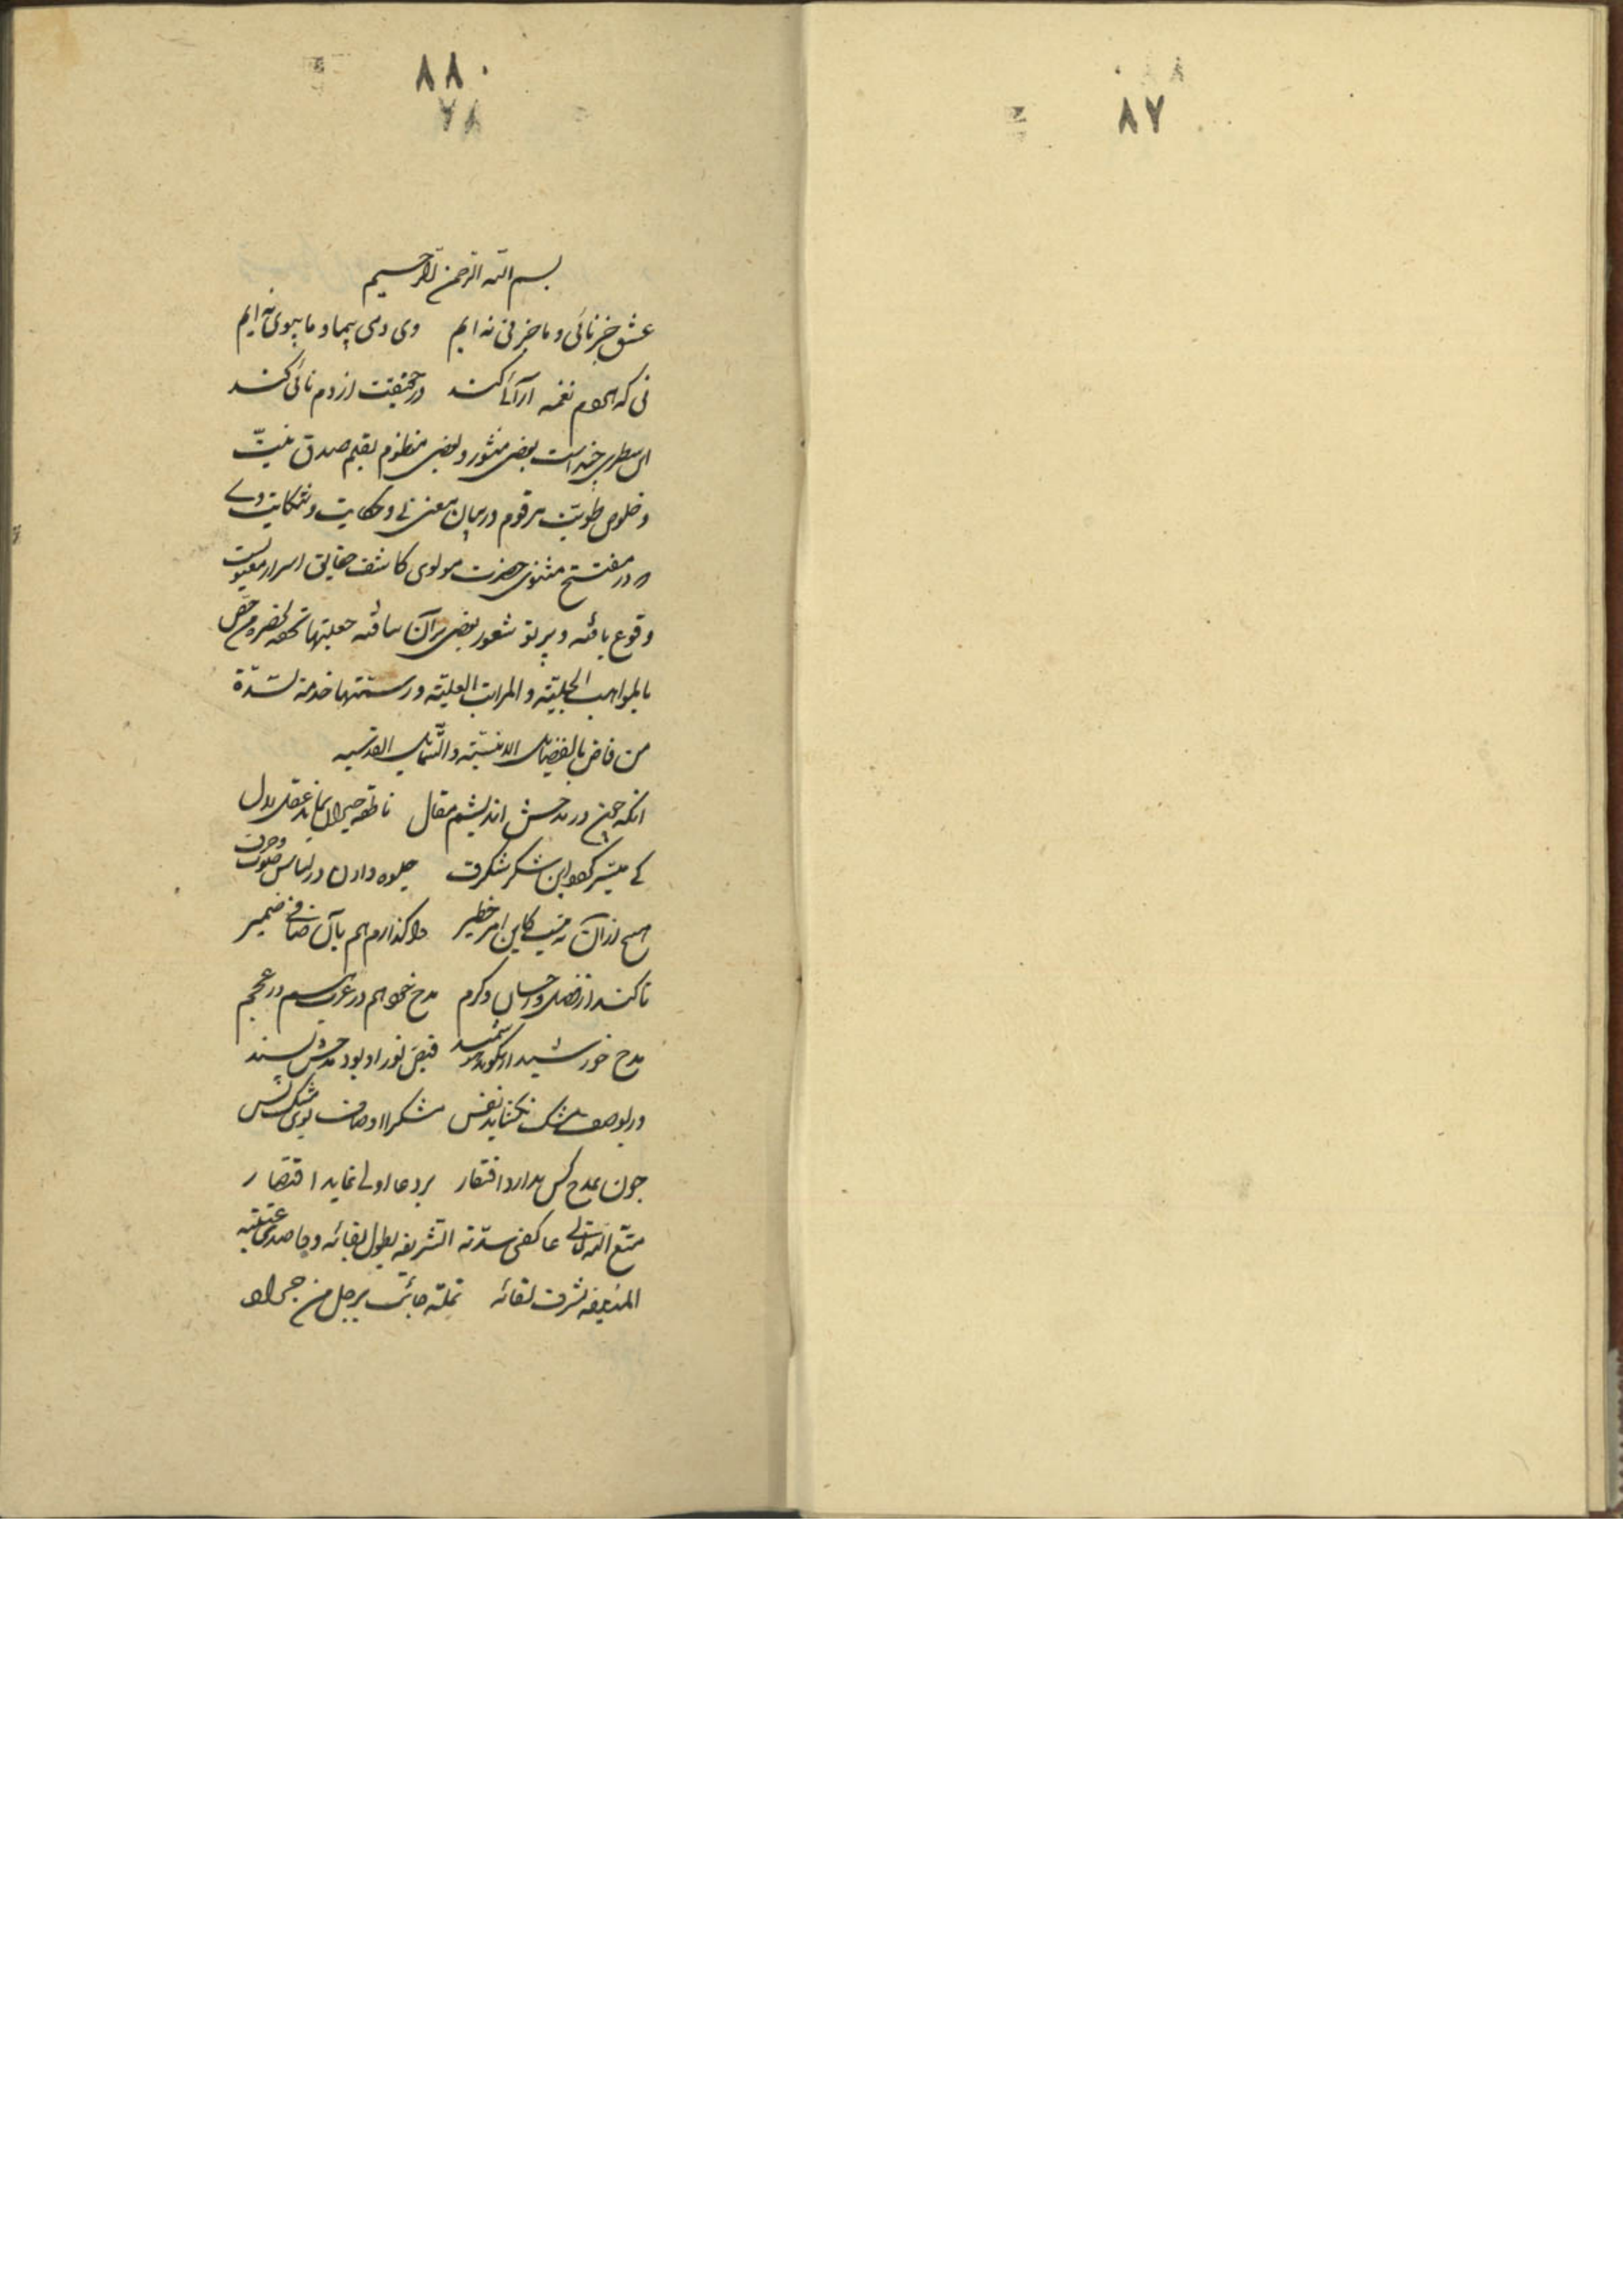 ۸۷
۸۸
بسم الله الرحمن الرحیم
عشق جز نائی و ما جز نی نه ایم وی دمی بیما و ما بیوی نه ایم
نی که هردم نغمه آرائی کند در حقیقت از دم نائی کند
این سطری چند است بعضی منثور و بعضی منظوم بقلم صدق نیت
و خلوص طویت مرقوم در بیان معنی نی و حکایت و شکایت وی
که در مفتتح مثنوی حضرت مولوی کاشف حقایق اسرار معنویست
وقوع یافته و پرتو شعور بعضی بر آن تافته جعلتها تحفه لحضرة من خص
بالمواهب الجلیة و المراتب العلیة و رسمتها خدمة لسدة
من فاض بالفضایل الانسیة و الشمایل القدسیه
آنکه چون در مدحش اندیشم مقال ناطقه حیران بماند عقل لال
کی میسر گردد این شکر شکرف جلوه دادن در لباس صوت و حرف
هیچ از آن به نیست کاین امر خطیر واگذارم هم بآن صافی ضمیر
تا کند از فضل و احسان و کرم مدح خود هم در عرب هم در عجم
مدح خورشید ار نگوید هوشمند فیض نور او بود مدحش پسند
ور بوصف مشک نگشاید نفس مشک را اوصاف بوی مشک بس
چون بمدح کس ندارد افتقار بر دعا اولی نماید اقتصار
متع الله تعالی عاکفی سدته الشریفه بطول بقائه و قاصدی عتبته
المنیفه بشرف لقائه نملة جائت برجل من جراد